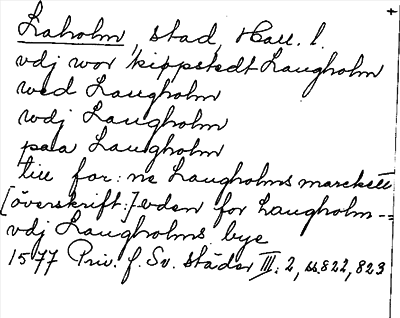 Laholm, stad, Hall. l.
vdj wor kippstedt Laugholm
wed Laugholm
wdj Laugholm
paa Laugholm
till for: ne Laugholms marckett
[överskrift:] eden for Laugholm --
vdj Laugholms bye
1577 Priv. f. Sv. städer III: 2, ss. 822, 823